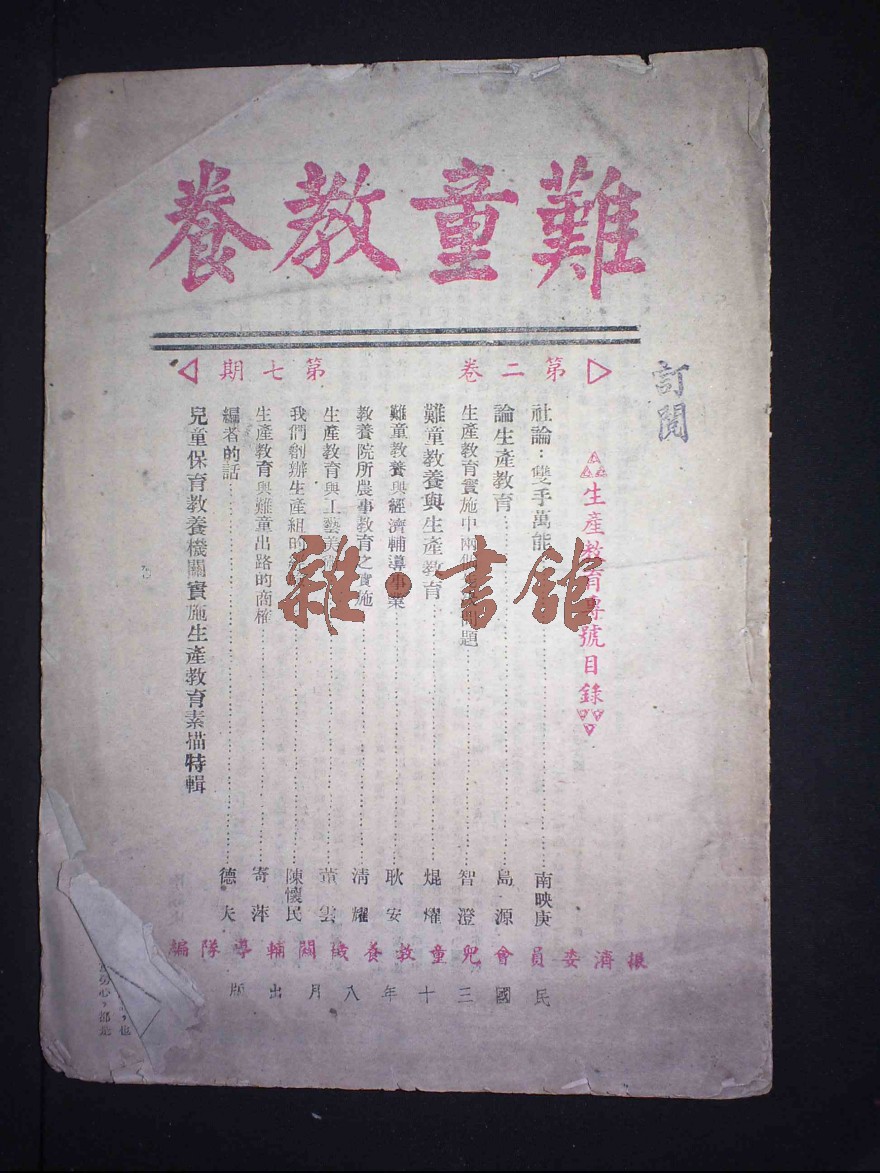 難童教養
第二卷
第七期
訂閱
生產教育專號目錄
社論：雙手萬能 南映庚
論生產教育 島源
生產教育實施中兩個 題 智澄
難童教養與生產教育 焜燿
難童教養與經濟輔導事業 耿安
教養院所農事教育之實施 清耀
生產教育與工藝美 董雲
我們創辦生產組的 陳懷民
生產教育與難童出路的商榷 寄萍
編者的話 德夫
兒童保育教養機關實施生產教育素描特輯
振濟委員會兒童教養機關輔導隊編
民國三十年八月出版
雜·書館